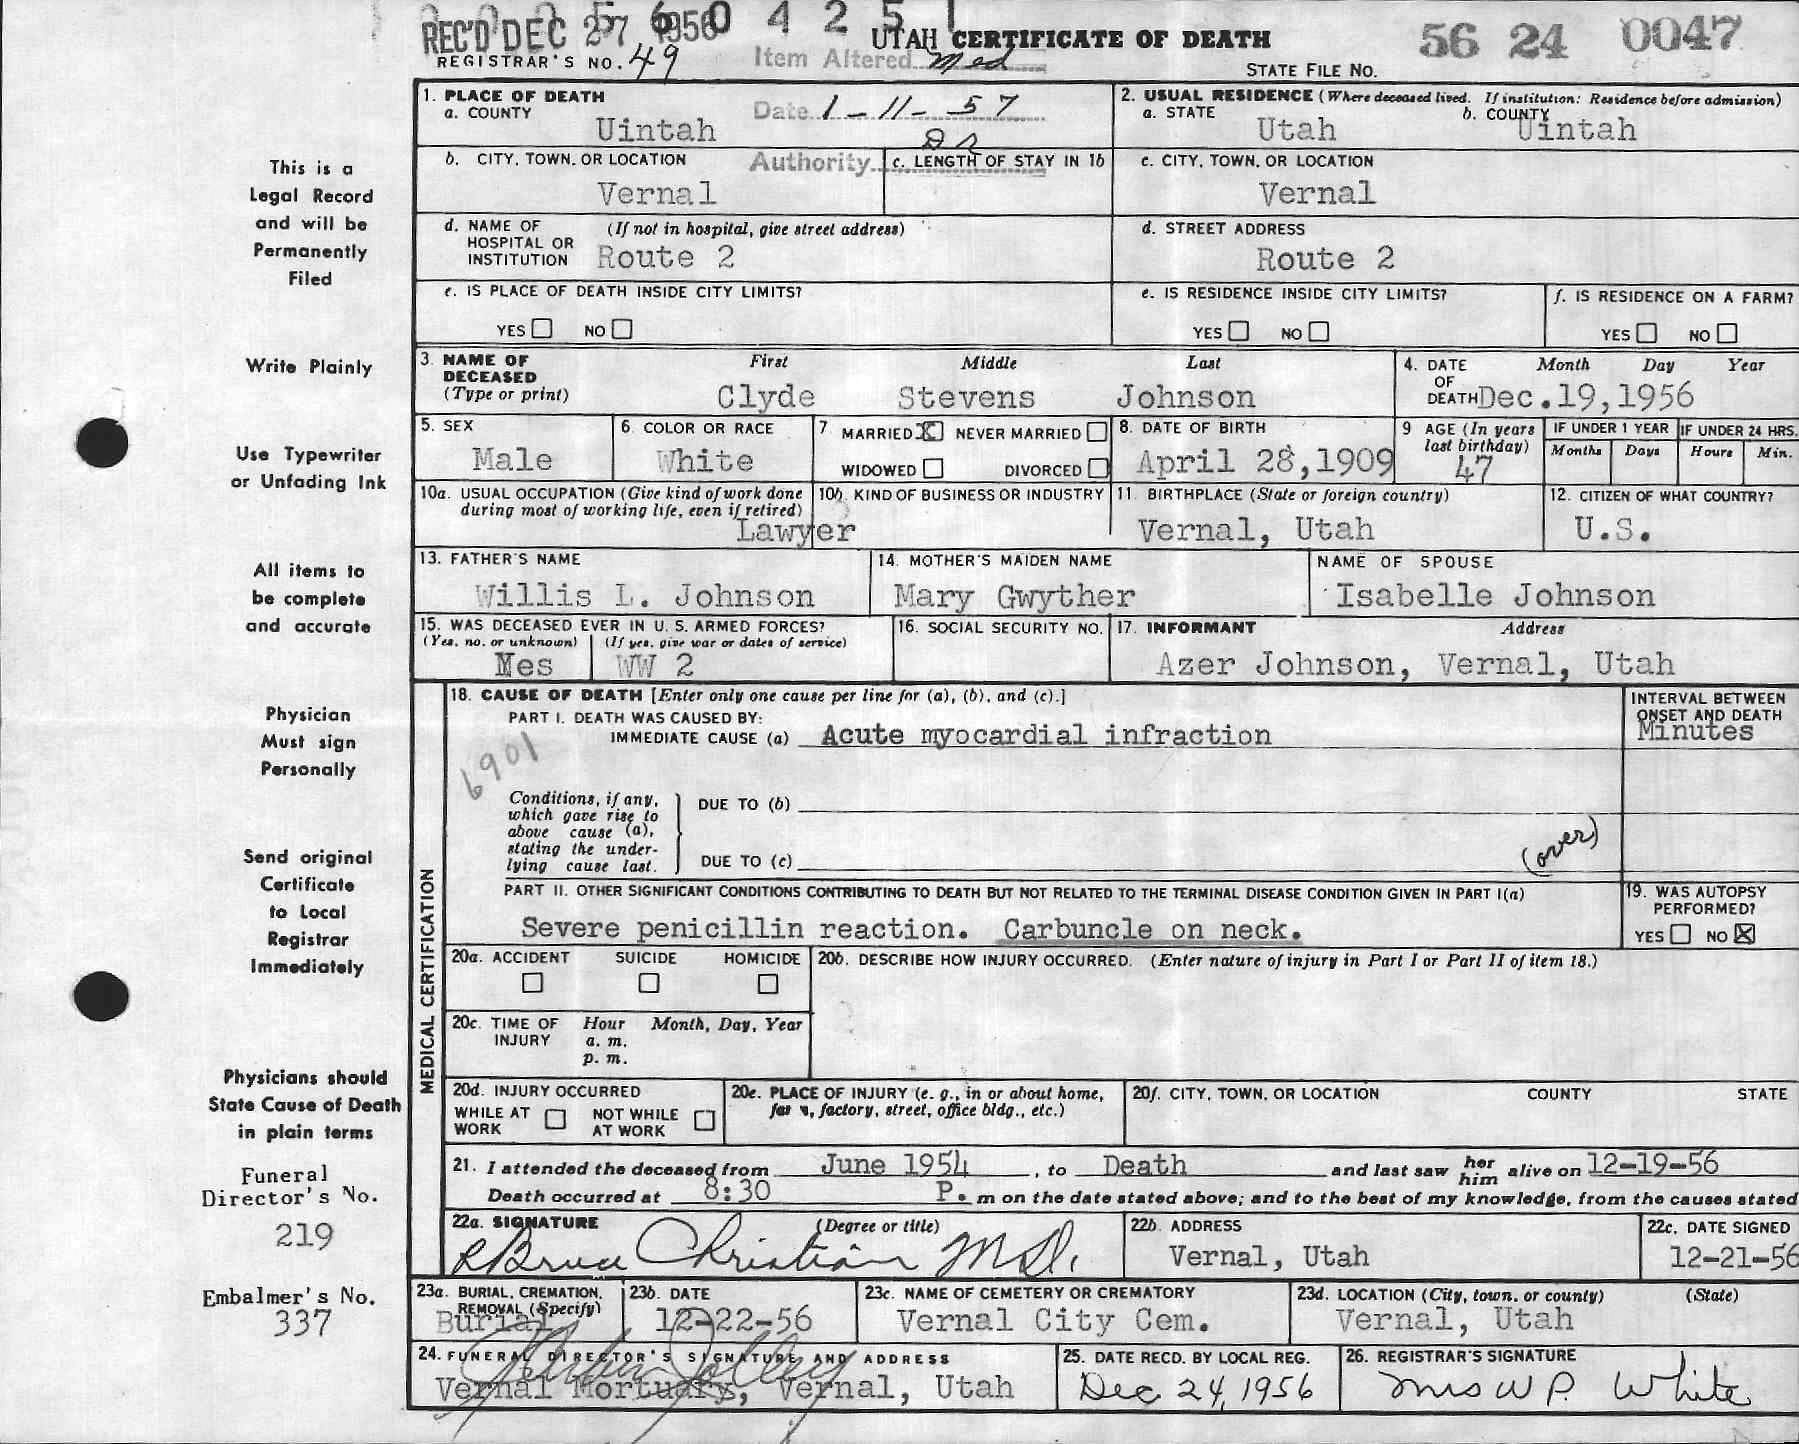 REC'D DEC 27 1956 0 4 2 5 1
UTAH CERTIFICATE OF DEATH
56 24 0047
REGISTRAR'S NO. 49
Item Altered Med
STATE FILE NO.
1. PLACE OF DEATH
a. COUNTY
Uintah
Date 1-11-57
2. USUAL RESIDENCE (Where deceased lived. If institution: Residence before admission)
a. STATE
Utah
b. COUNTY
Uintah
b. CITY, TOWN, OR LOCATION
Vernal
Authority
c. LENGTH OF STAY IN 1b
c. CITY, TOWN, OR LOCATION
Vernal
d. NAME OF HOSPITAL OR INSTITUTION
(If not in hospital, give street address)
Route 2
d. STREET ADDRESS
Route 2
e. IS PLACE OF DEATH INSIDE CITY LIMITS?
YES NO
e. IS RESIDENCE INSIDE CITY LIMITS?
YES NO
f. IS RESIDENCE ON A FARM?
YES NO
3. NAME OF DECEASED
(Type or print)
First Middle Last
Clyde Stevens Johnson
4. DATE OF DEATH
Month Day Year
Dec.19,1956
5. SEX
Male
6. COLOR OR RACE
White
7 MARRIED X NEVER MARRIED
WIDOWED DIVORCED
8. DATE OF BIRTH
April 28,1909
9 AGE (In years last birthday)
47
IF UNDER 1 YEAR
Months Days
IF UNDER 24 HRS.
Hours Min.
10a. USUAL OCCUPATION (Give kind of work done during most of working life, even if retired)
Lawyer
10b. KIND OF BUSINESS OR INDUSTRY
11. BIRTHPLACE (State or foreign country)
Vernal, Utah
12. CITIZEN OF WHAT COUNTRY?
U.S.
13. FATHER'S NAME
Willis L. Johnson
14. MOTHER'S MAIDEN NAME
Mary Gwyther
NAME OF SPOUSE
Isabelle Johnson
15. WAS DECEASED EVER IN U. S. ARMED FORCES?
(Yes, no, or unknown) (If yes, give war or dates of service)
Yes WW 2
16. SOCIAL SECURITY NO.
17. INFORMANT Address
Azer Johnson, Vernal, Utah
MEDICAL CERTIFICATION
18. CAUSE OF DEATH [Enter only one cause per line for (a), (b), and (c).]
PART I. DEATH WAS CAUSED BY:
IMMEDIATE CAUSE (a) Acute myocardial infraction
INTERVAL BETWEEN ONSET AND DEATH
Minutes
6901
Conditions, if any, which gave rise to above cause (a), stating the underlying cause last.
DUE TO (b)
DUE TO (c)
(over)
PART II. OTHER SIGNIFICANT CONDITIONS CONTRIBUTING TO DEATH BUT NOT RELATED TO THE TERMINAL DISEASE CONDITION GIVEN IN PART I(a)
Severe penicillin reaction. Carbuncle on neck.
19. WAS AUTOPSY PERFORMED?
YES NO X
20a. ACCIDENT SUICIDE HOMICIDE
20b. DESCRIBE HOW INJURY OCCURRED. (Enter nature of injury in Part I or Part II of item 18.)
20c. TIME OF INJURY
Hour Month, Day, Year
a. m.
p. m.
20d. INJURY OCCURRED
WHILE AT WORK
NOT WHILE AT WORK
20e. PLACE OF INJURY (e. g., in or about home, farm, factory, street, office bldg., etc.)
20f. CITY, TOWN, OR LOCATION COUNTY STATE
21. I attended the deceased from June 1954, to Death and last saw her him alive on 12-19-56
Death occurred at 8:30 P. m on the date stated above; and to the best of my knowledge, from the causes stated
22a. SIGNATURE (Degree or title)
R Bruce Christian M.D.
22b. ADDRESS
Vernal, Utah
22c. DATE SIGNED
12-21-56
23a. BURIAL, CREMATION, REMOVAL (Specify)
Burial
23b. DATE
12-22-56
23c. NAME OF CEMETERY OR CREMATORY
Vernal City Cem.
23d. LOCATION (City, town, or county) (State)
Vernal, Utah
24. FUNERAL DIRECTOR'S SIGNATURE AND ADDRESS
Vernal Mortuary, Vernal, Utah
25. DATE RECD. BY LOCAL REG.
Dec. 24, 1956
26. REGISTRAR'S SIGNATURE
Mrs W P. White
This is a
Legal Record
and will be
Permanently
Filed
Write Plainly
Use Typewriter
or Unfading Ink
All items to
be complete
and accurate
Physician
Must sign
Personally
Send original
Certificate
to Local
Registrar
Immediately
Physicians should
State Cause of Death
in plain terms
Funeral
Director's No.
219
Embalmer's No.
337